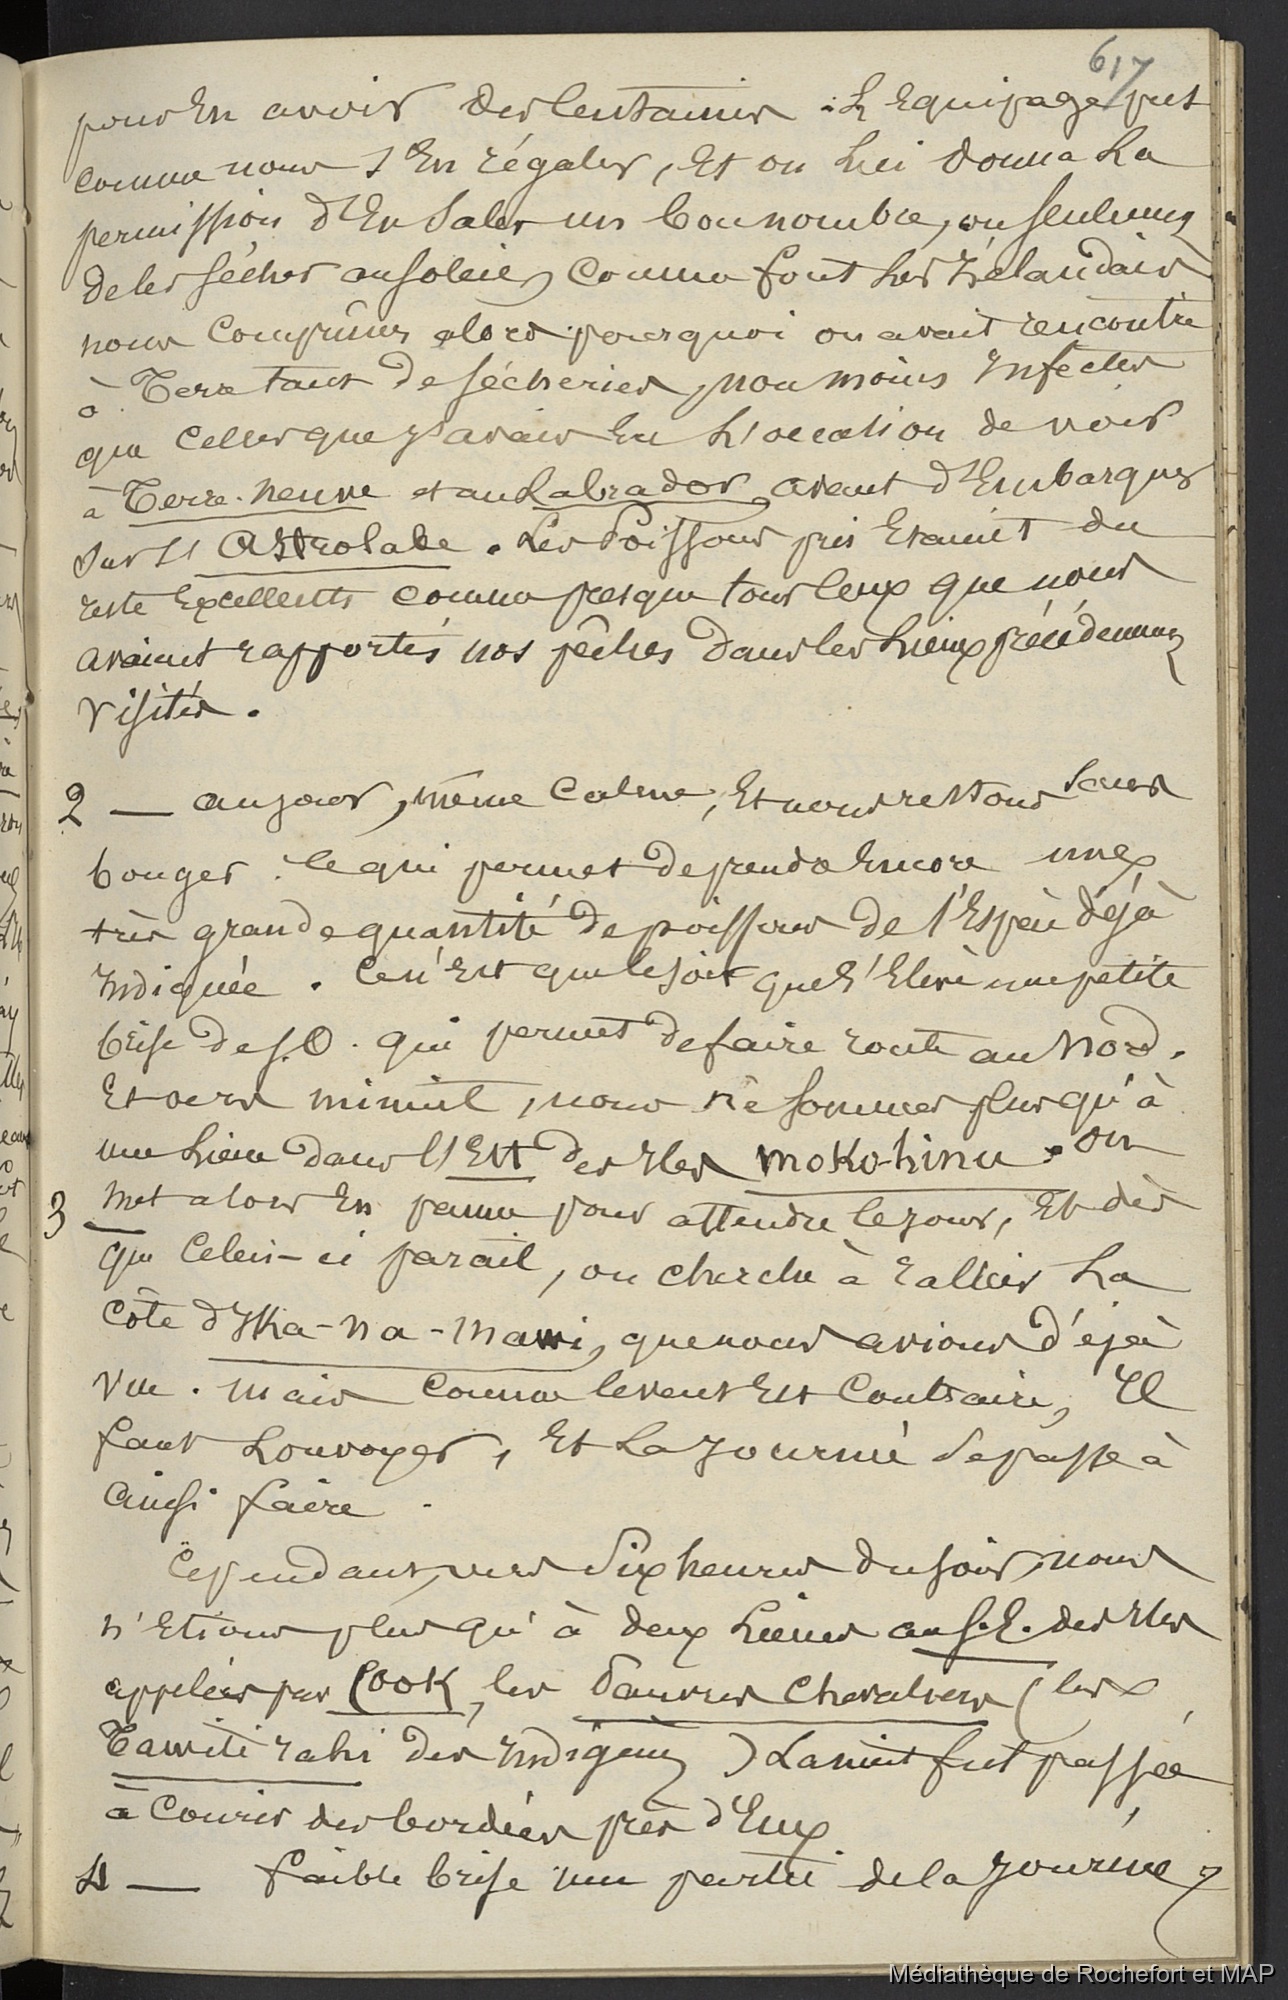 617
pour En avoir des Centaines. L'Equipage put
comme nous s'En régaler, Et on Lui donna La
permission d'En Saler un bon nombre, ou seulement
de les sécher au soleil, comme font Les Zélandais
nous Comprîmes alors pourquoi on avait rencontré
à Terre tant de sécheries, non moins Infectes
que Celles que J'avais Eu L'occasion de voir
à Terre-Neuve et au Labrador, avant d'Embarquer
sur l'Astrolabe. Les Poissons pris Etaient du
reste Excellents comme presque tous Ceux que nous
avaient rapportés nos pêches dans les Lieux précédemment
visités.
2 — au jour, même Calme, Et nous restons sans
bouger. Ce qui permet de prendre Encore une
très grande quantité de poissons de l'Espèce déjà
Indiquée. Ce n'Est que le soir que s'Elève une petite
brise de S.O. qui permet de faire route au Nord.
Et vers minuit, nous ne sommes plus qu'à
une Lieue dans l'Est des Iles Moko-hinu. On
3 met alors En panne pour attendre le jour, Et dès
que Celui-ci paraît, on cherche à rallier La
Côte d'Ika-Na-Mawi, que nous avions déjà
vue. Mais comme le vent Est Contraire, Il
faut Louvoyer, Et La Journée se passe à
ainsi faire.
Cependant, vers Six heures du soir, nous
n'Etions plus qu'à deux Lieues au S.E. des Iles
appelées par Cook, les Pauvres Chevaliers (les
Tawiti rahi des Indigènes) La nuit fut passée
à Courir des bordées près d'Eux
4 — faible brise une partie de la Journée,
Médiathèque de Rochefort et MAP